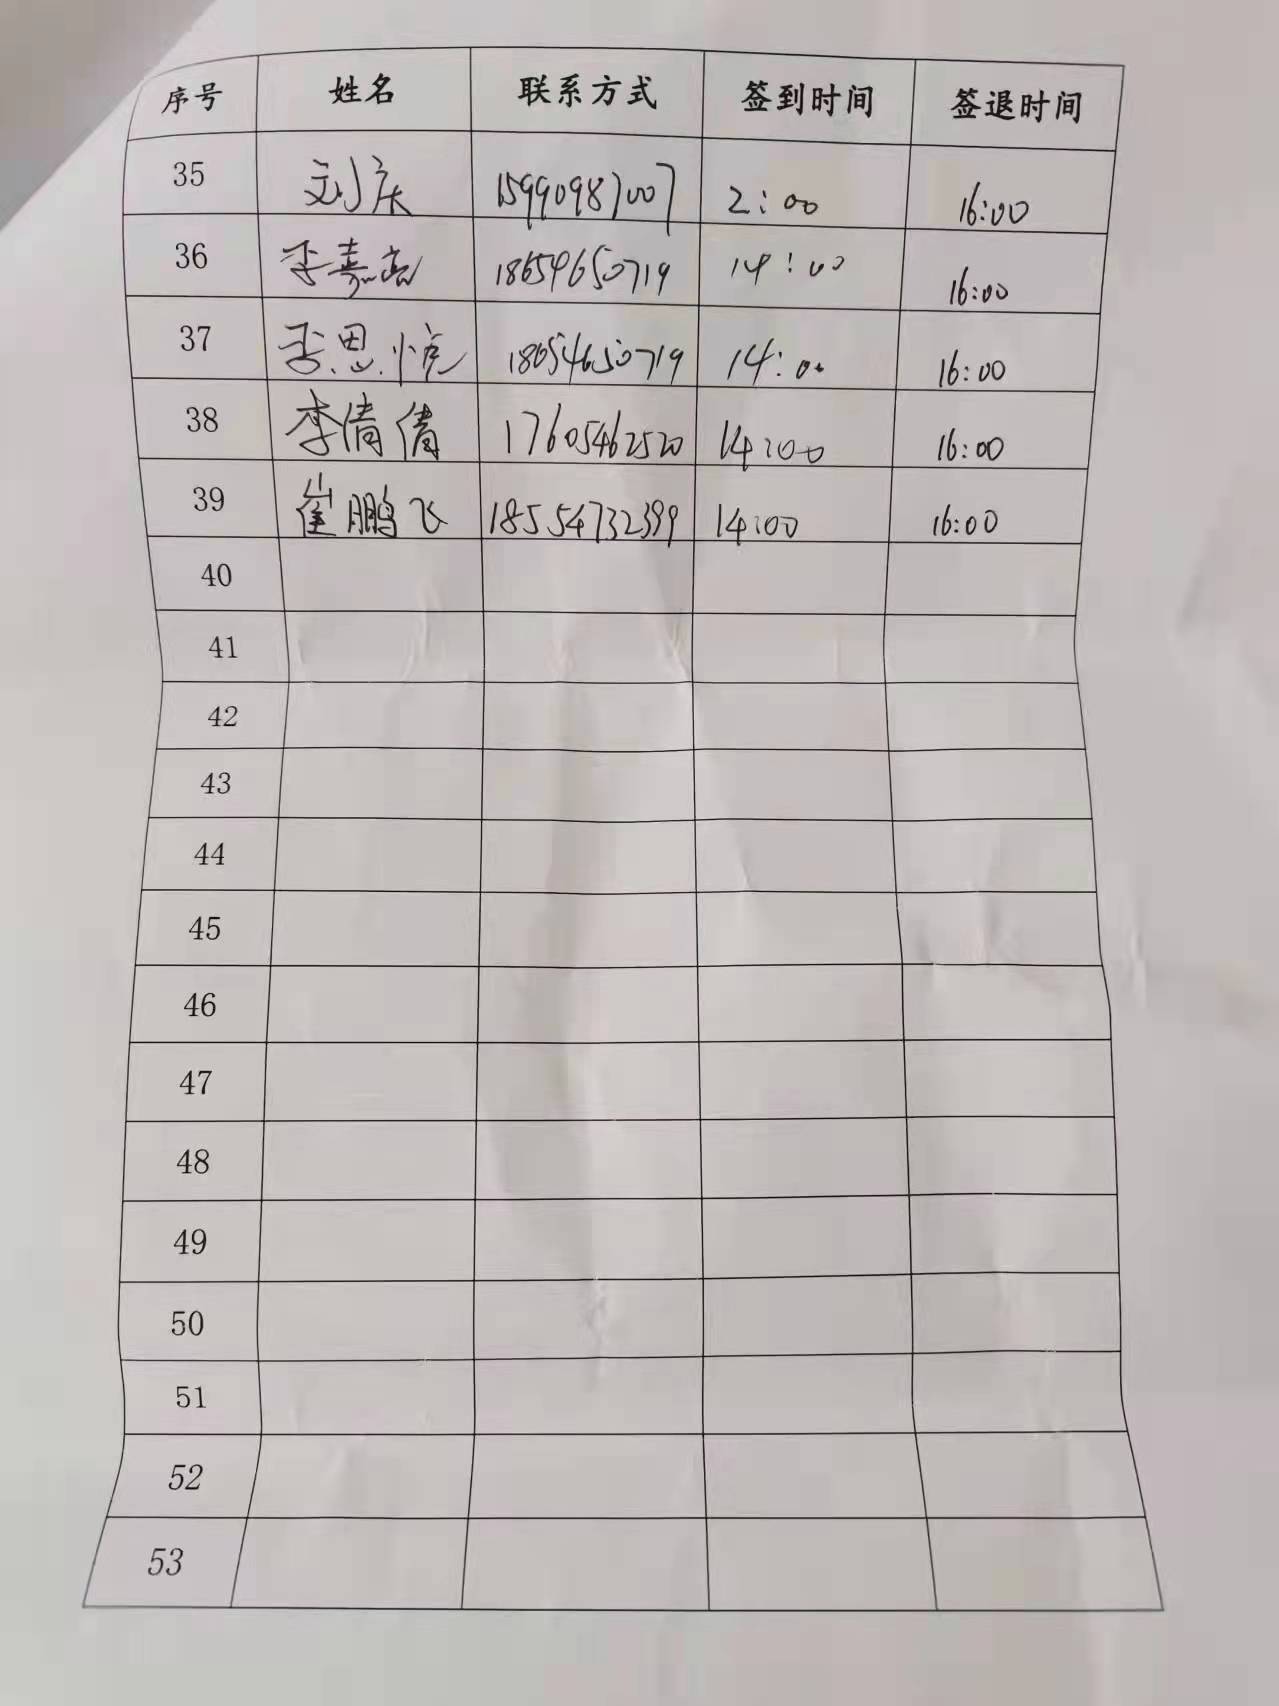 序号 姓名 联系方式 签到时间 签退时间
35 刘庆 15990987007 2:00 16:00
36 李嘉亮 18654650719 14:00 16:00
37 李思悦 18654650719 14:00 16:00
38 李倩倩 17605462520 14:00 16:00
39 崔鹏飞 18554732399 14:00 16:00
40
41
42
43
44
45
46
47
48
49
50
51
52
53